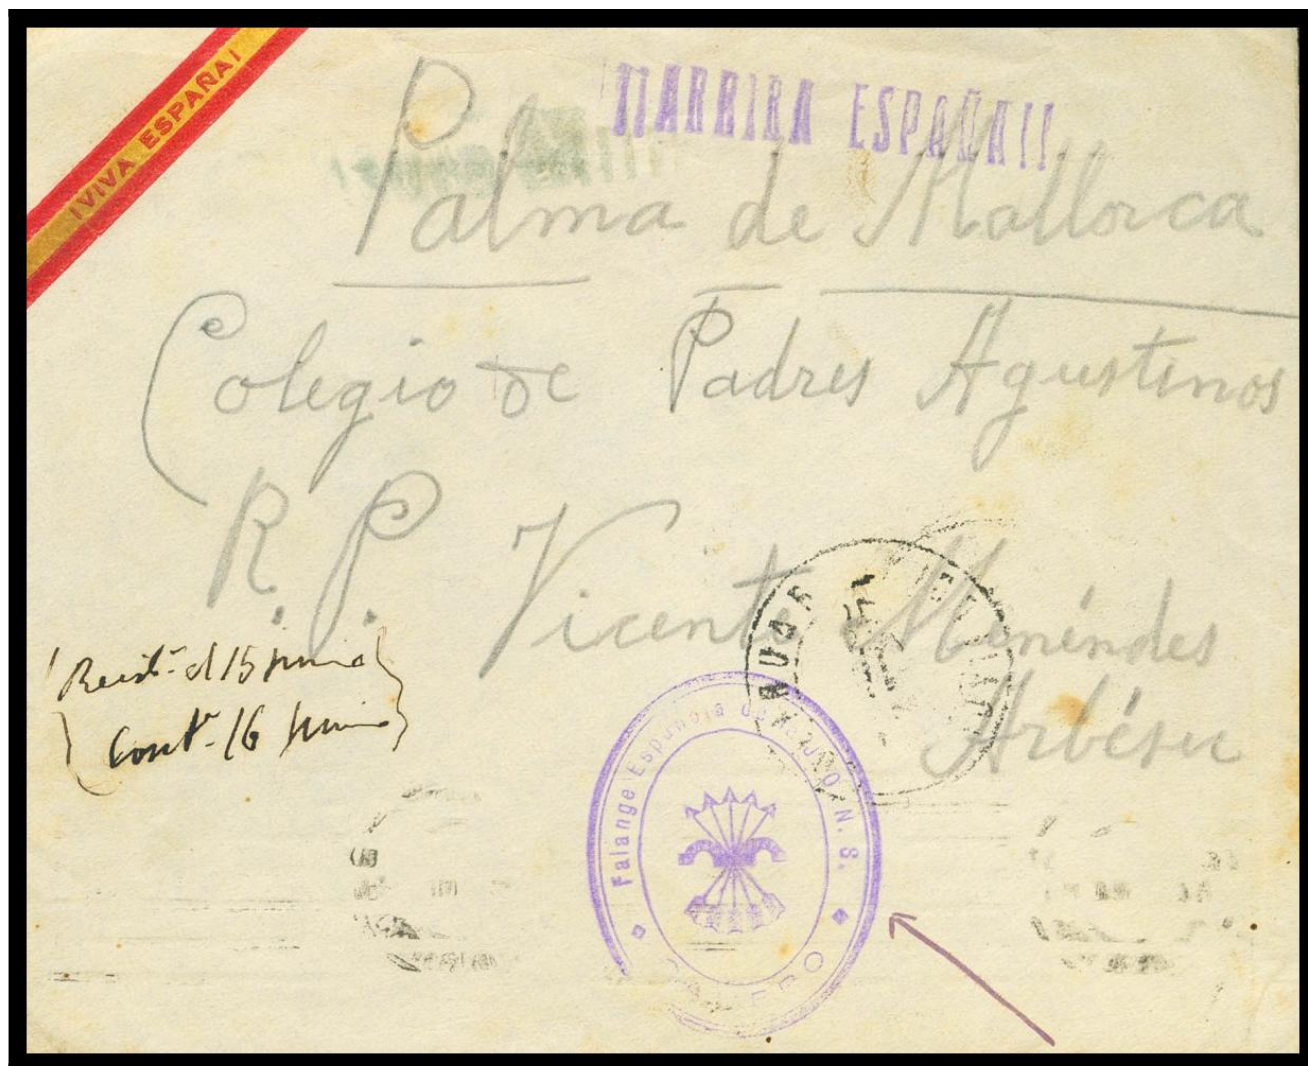 ¡VIVA ESPAÑA!
¡¡ARRIBA ESPAÑA!!
Palma de Mallorca
Colegio de Padres Agustinos
R. P. Vicente Menéndes
Arbésu
15 junio
16 junio
Falange Española de N. S.